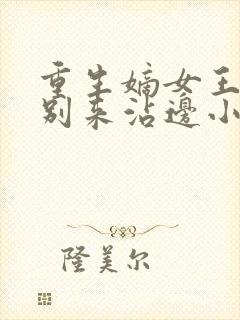 重生嫡女王
别来沾邊小
隆美尔